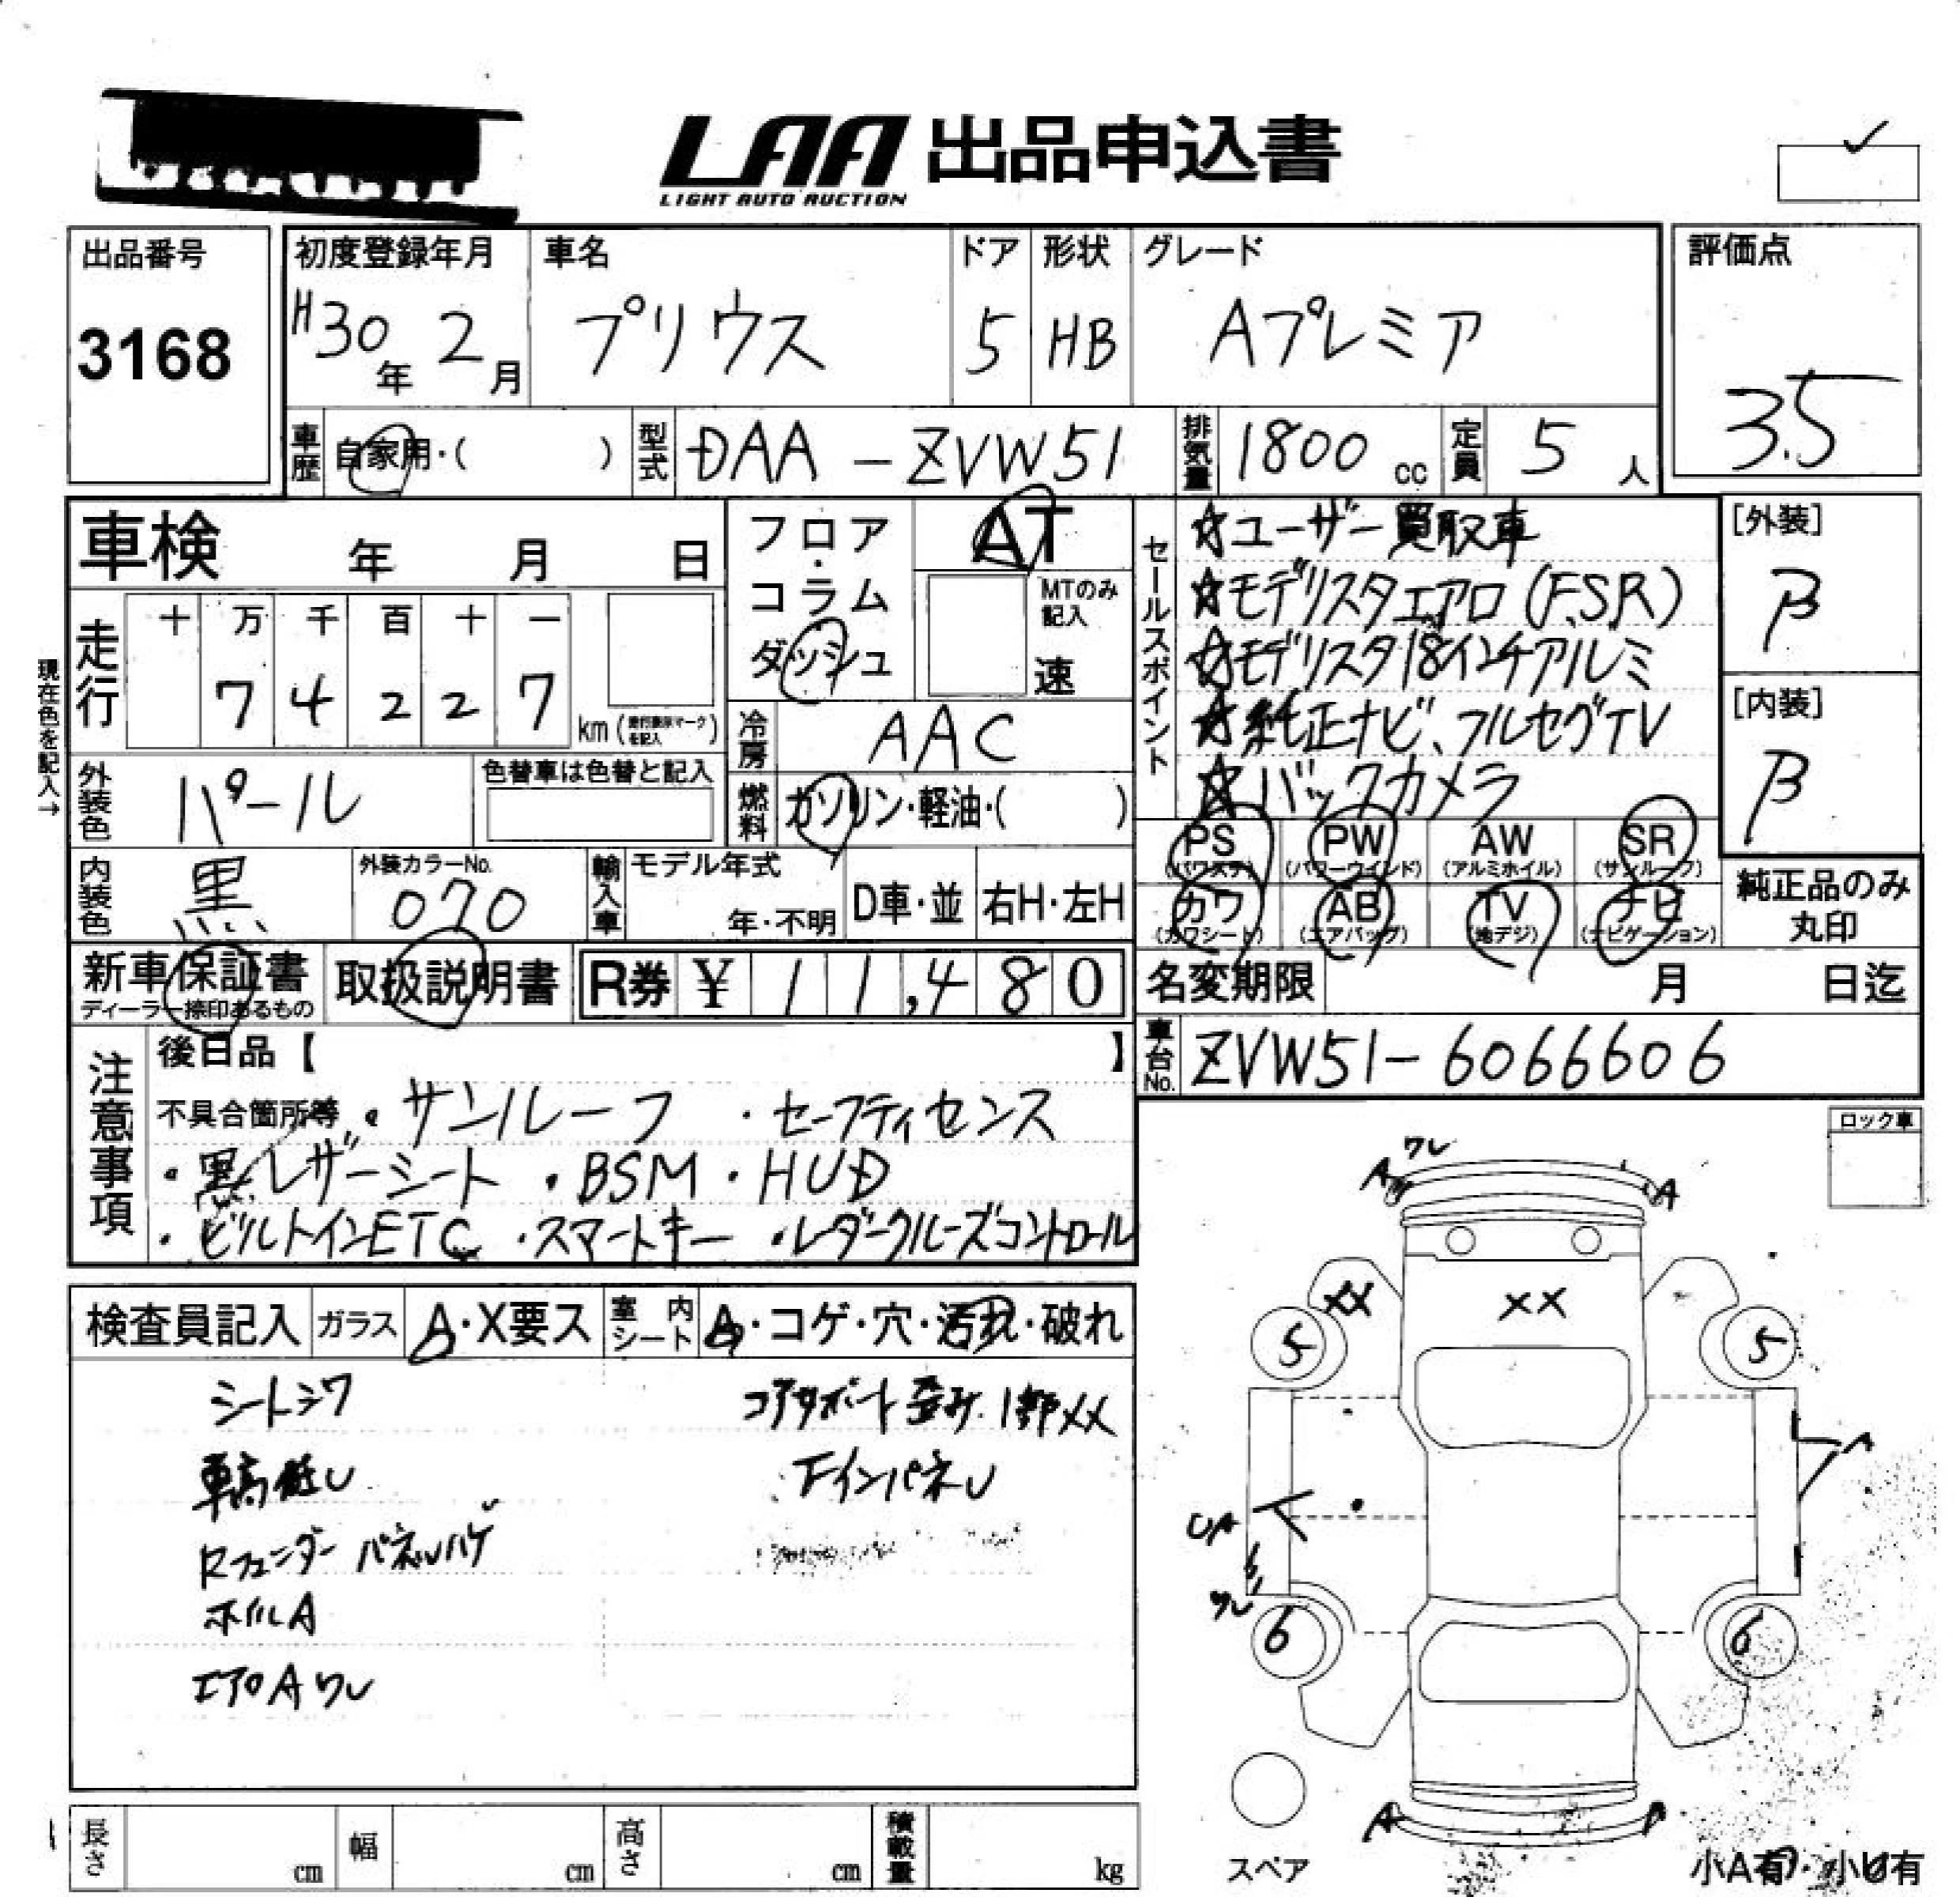 LAA 出品申込書
LIGHT AUTO AUCTION
出品番号
3168
初度登録年月
H30年 2月
車名
プリウス
ドア
5
形状
HB
グレード
Aプレミア
評価点
3.5
車歴 自家用・( )
型式 DAA-ZVW51
排気量 1800 cc
定員 5 人
車検 年 月 日
フロア・コラム ダッシュ
AT
MTのみ記入
速
セールスポイント
☆ユーザー買取車
☆モデリスタエアロ(F.S.R)
☆モデリスタ18インチアルミ
☆純正ナビ、フルセグTV
☆バックカメラ
[外装]
β
[内装]
β
現在色を記入→
走行
十 万 千 百 十 一
7 4 2 2 7
km(
冷房 AAC
外装色 パール
色替車は色替と記入
燃料 ガソリン・軽油・( )
PS (パワステ)
PW (パワーウインド)
AW (アルミホイル)
SR (サンルーフ)
内装色 黒
外装カラーNo.
070
輸入車 モデル年式
年・不明
D車・並
右H・左H
カワ (カワシート)
AB (エアバッグ)
TV (地デジ)
ナビ (ナビゲーション)
純正品のみ丸印
新車保証書
ディーラー捺印あるもの
取扱説明書
R券 ¥ 11,480
名変期限 月 日迄
車台No. ZVW51-6066606
注意事項
後日品【 】
不具合箇所等 ・サンルーフ ・セーフティセンス
・黒レザーシート ・BSM ・HUD
・ビルトインETC ・スマートキー ・レダークルーズコントロール
ロック車
検査員記入 ガラス A・X要ス 室内シート A・コゲ・穴・汚れ・破れ
シートシワ
車高低し
Rフェンダー パネルハゲ
ホイルA
エアロAワレ
コアサポート歪み.1部XX
FインパネU
ワレ
A
A
XX
XX
5
5
A
UA
ワレ
6
6
A
スペア
小A有・小U有
長さ cm
幅 cm
高さ cm
積載量 kg